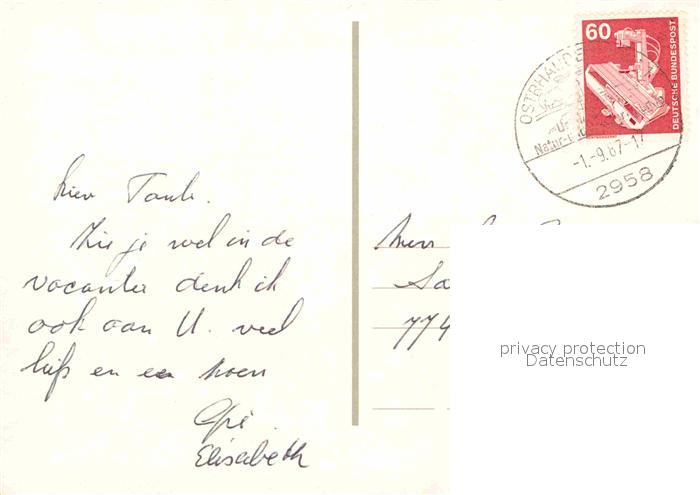 60
DEUTSCHE BUNDESPOST
OSTRHAUDE
Natur-
-1.-9.87-17
2958
lieve Tante.
Zie je wel in de
vacantie denk ik
ook aan U. veel
liefs en een zoen
Elisabeth
Sa
774
privacy protection
Datenschutz